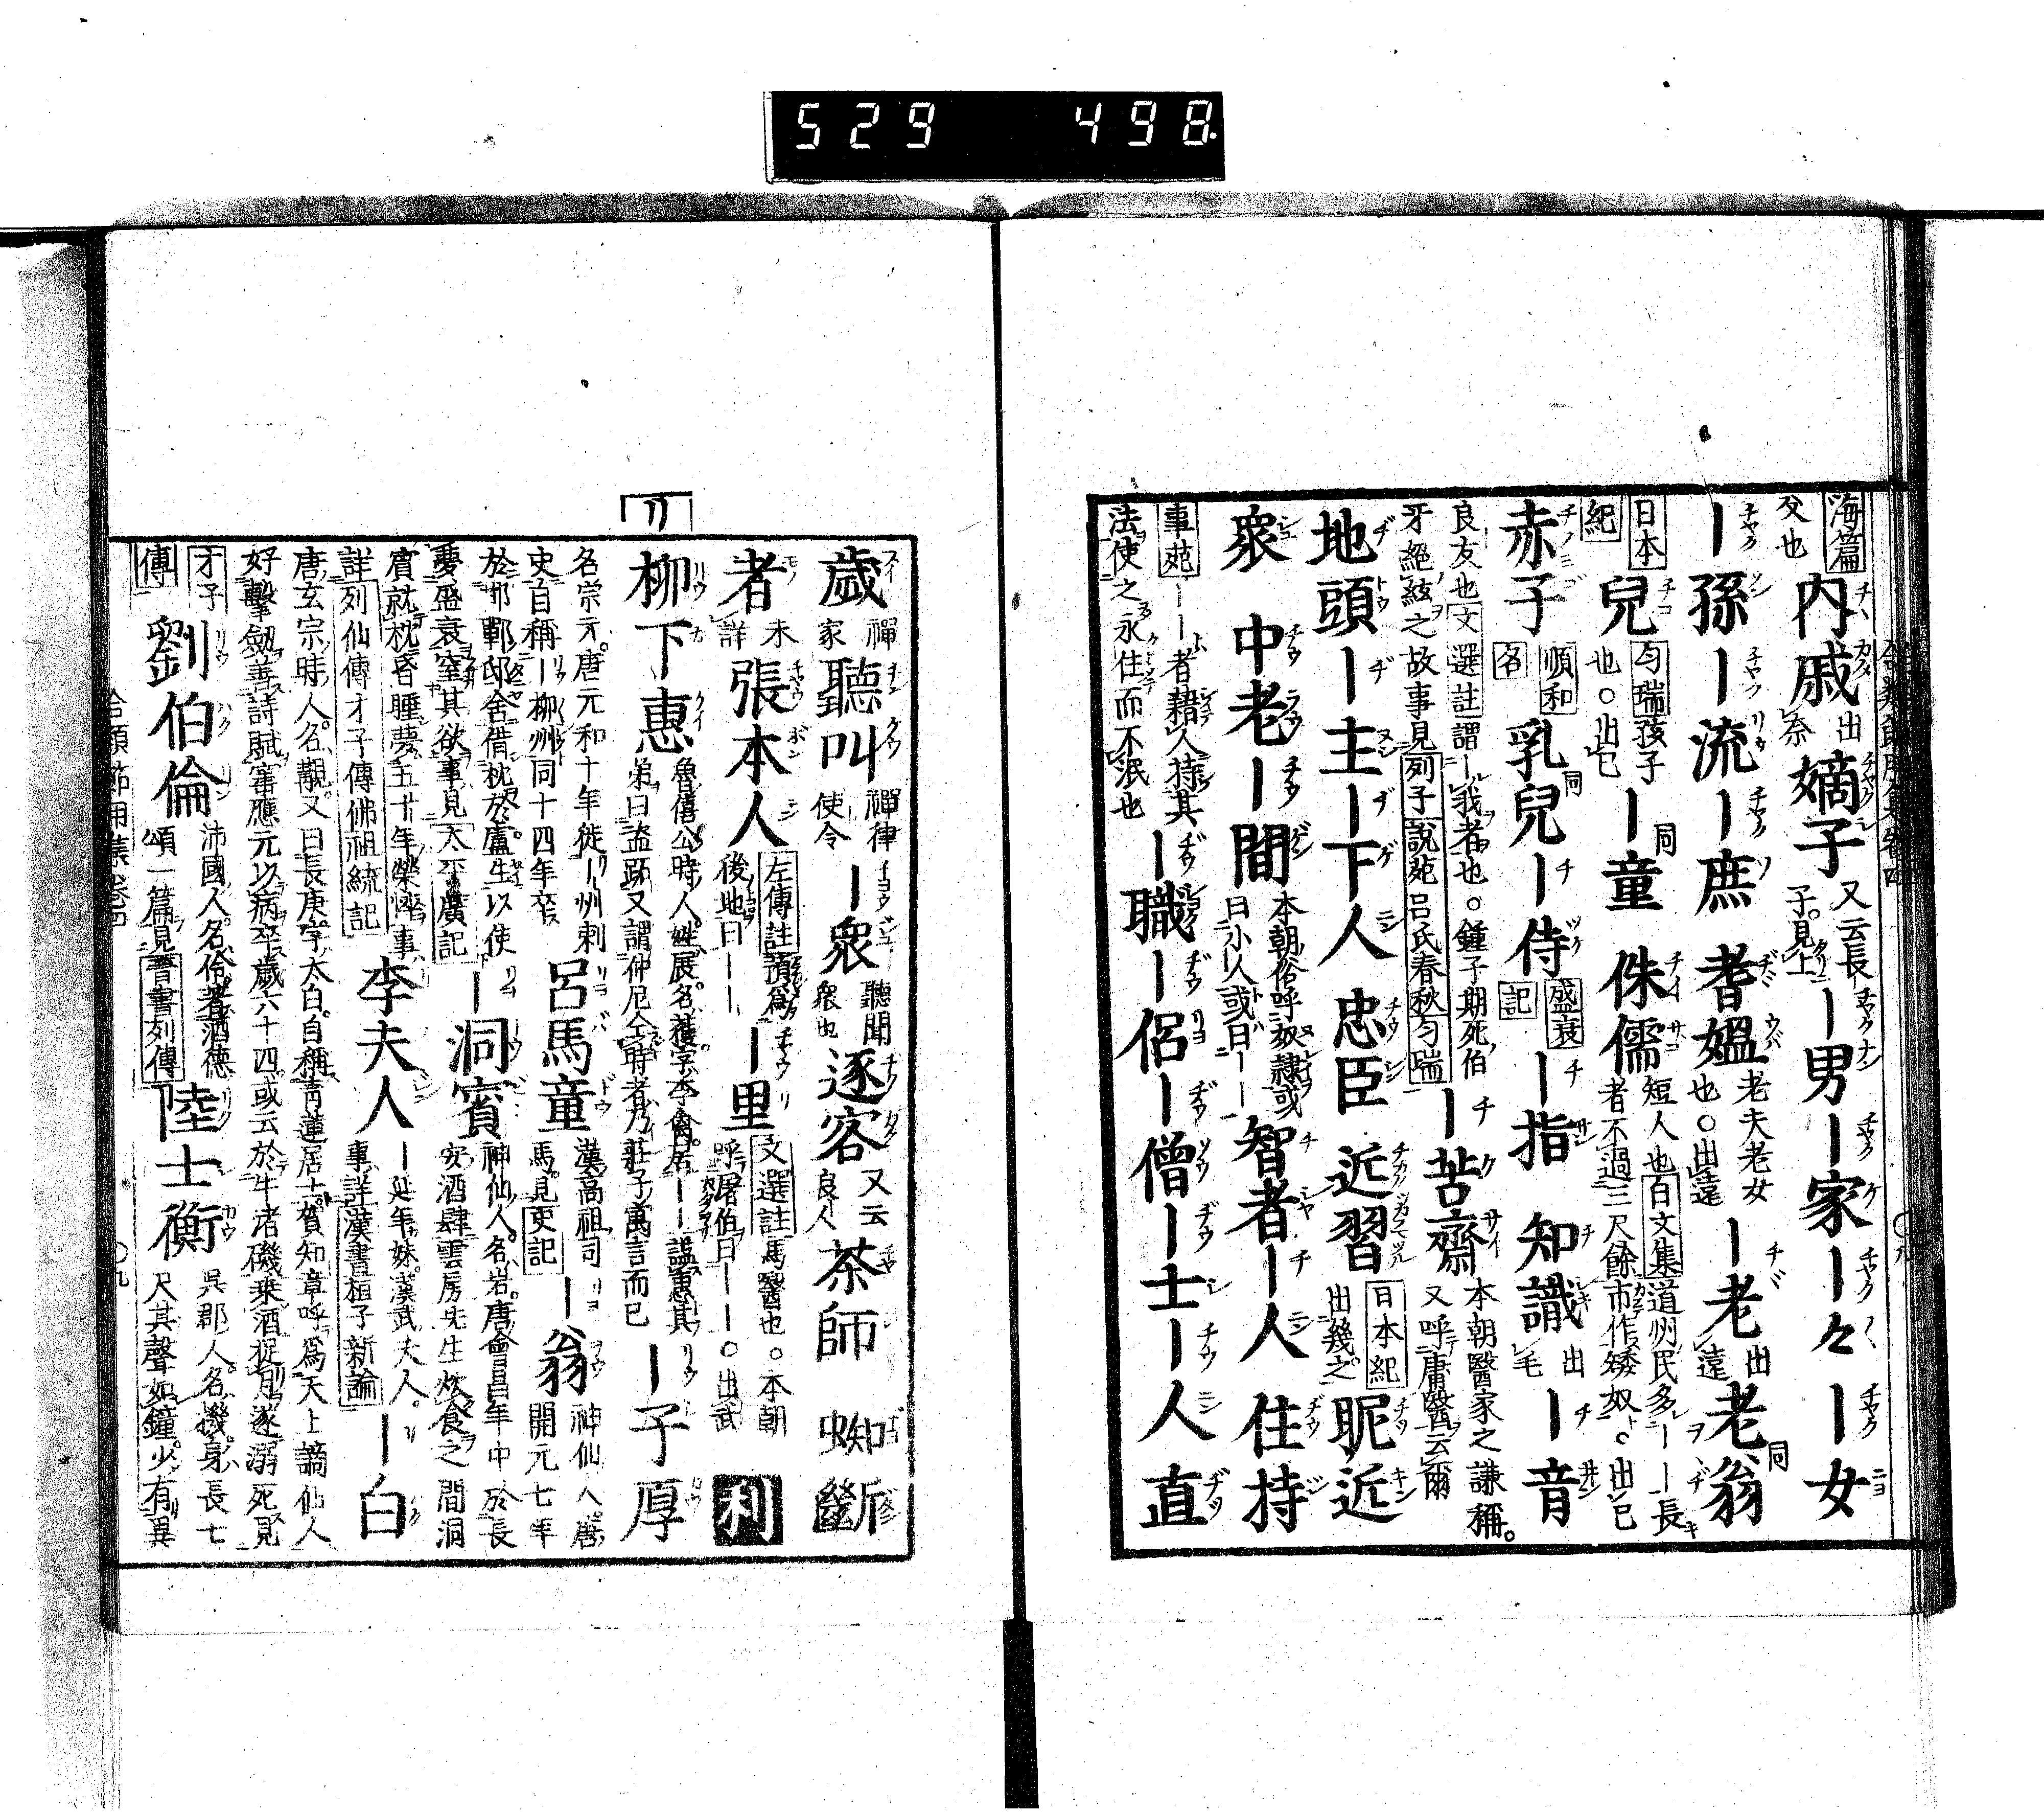 529 498
海篇
父也
内戚 出奈 嫡子 又云長子見上 ー男ー家ー々ー女
ー孫ー流ー庶 耆媼 老夫老女也○出遠 ー老 出遠 老翁 同
日本紀 兒 匀瑞 孩子也○出已 ー童 同 侏儒 短人也 百文集 道州民多ーー長者不過三尺餘市作矮奴○出已
赤子 順和名 乳兒 同 ー侍 盛衰記 ー指 知識 出毛 ー音
良友也 文選註 謂ー我者也○鍾子期死伯牙絕絃之故事見 列子 說苑 呂氏春秋 匀瑞 ー苦齋 本朝醫家之謙稱。又呼庸醫云爾
地頭ー主ー下人 忠臣 近習 日本紀 出幾之 昵近
衆 中老ー間 本朝俗呼奴隷或曰小人或曰ーー 智者ー人 住持
事苑 ーー者藉人持其法使之永住而不泯也 ー職ー侶ー僧ー士ー人 直
歲 禪家 聽叫 禪律使令 ー衆 聽聞衆也 逐客 又云良人 茶師 蜘斷
者 未詳 張本人 左傳註 預爲後地曰ーー ー里 文選註 馬醫也○本朝呼屠伯曰ーー○出武 利
リ
柳下惠 魯僖公時人姓展名獲字李禽居ーー諡惠其弟曰盗跖又謂仲尼仝時者乃莊子寓言而已 ー子厚
名宗元。唐元和十年徙ー州刺史自稱ー柳州同十四年卒 呂馬童 漢高祖司馬見 史記 ー翁 神仙人唐開元七年
於邯鄲邸舍借枕於盧生以使夢盛衰窒其欲事見 太平廣記 ー洞賓 神仙人名岩。唐會昌年中於長安酒肆雲房先生炊食之間洞
賓就枕昏睡夢五十年榮悴事詳 列仙傳 才子傳 佛祖統記 李夫人 ー延年妹漢武夫人。事詳 漢書 桓子新論 ー白
唐玄宗時人。名觀。又曰長庚字太白。自稱青蓮居士賀知章呼爲天上謫仙人好擊劔善詩賦審應元以病卒歲六十四或云於牛渚磯乗酒捉月遂溺死見
才子傳 劉伯倫 沛國人名伶著酒德頌一篇見 晋書列傳 陸士衡 吳郡人名機身長七尺其聲如鐘少有異
合類節用集卷四 ○九